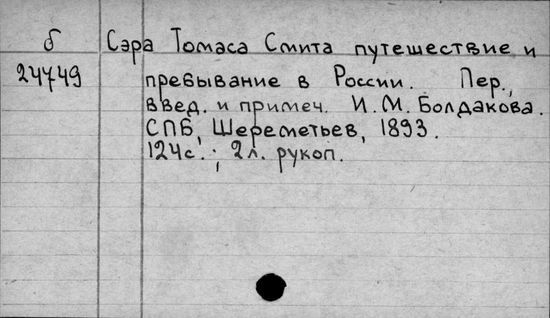 б Сэра Томаса Смита путешествие и
24749 пребывание в России. Пер.,
введ. и примеч. И.М. Болдакова.
СПБ, Шереметьев, 1893.
124с.; 2л. рукоп.